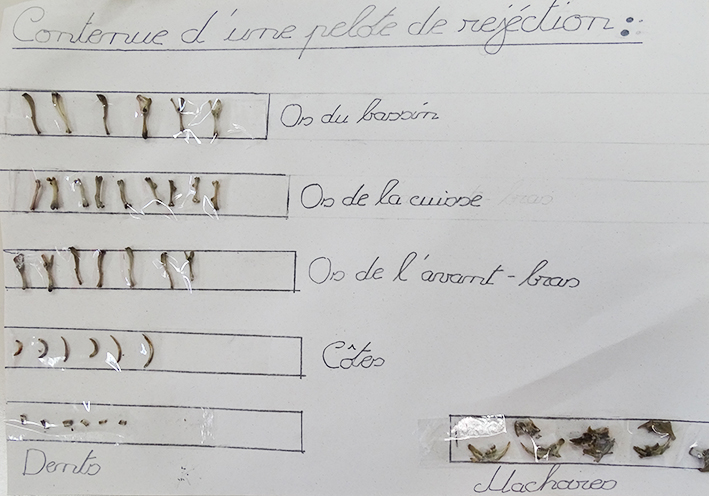 Contenue d'une pelote de rejéction :
Os du bassin
Os de la cuisse
Os de l'avant-bras
Côtes
Dents
Machoires